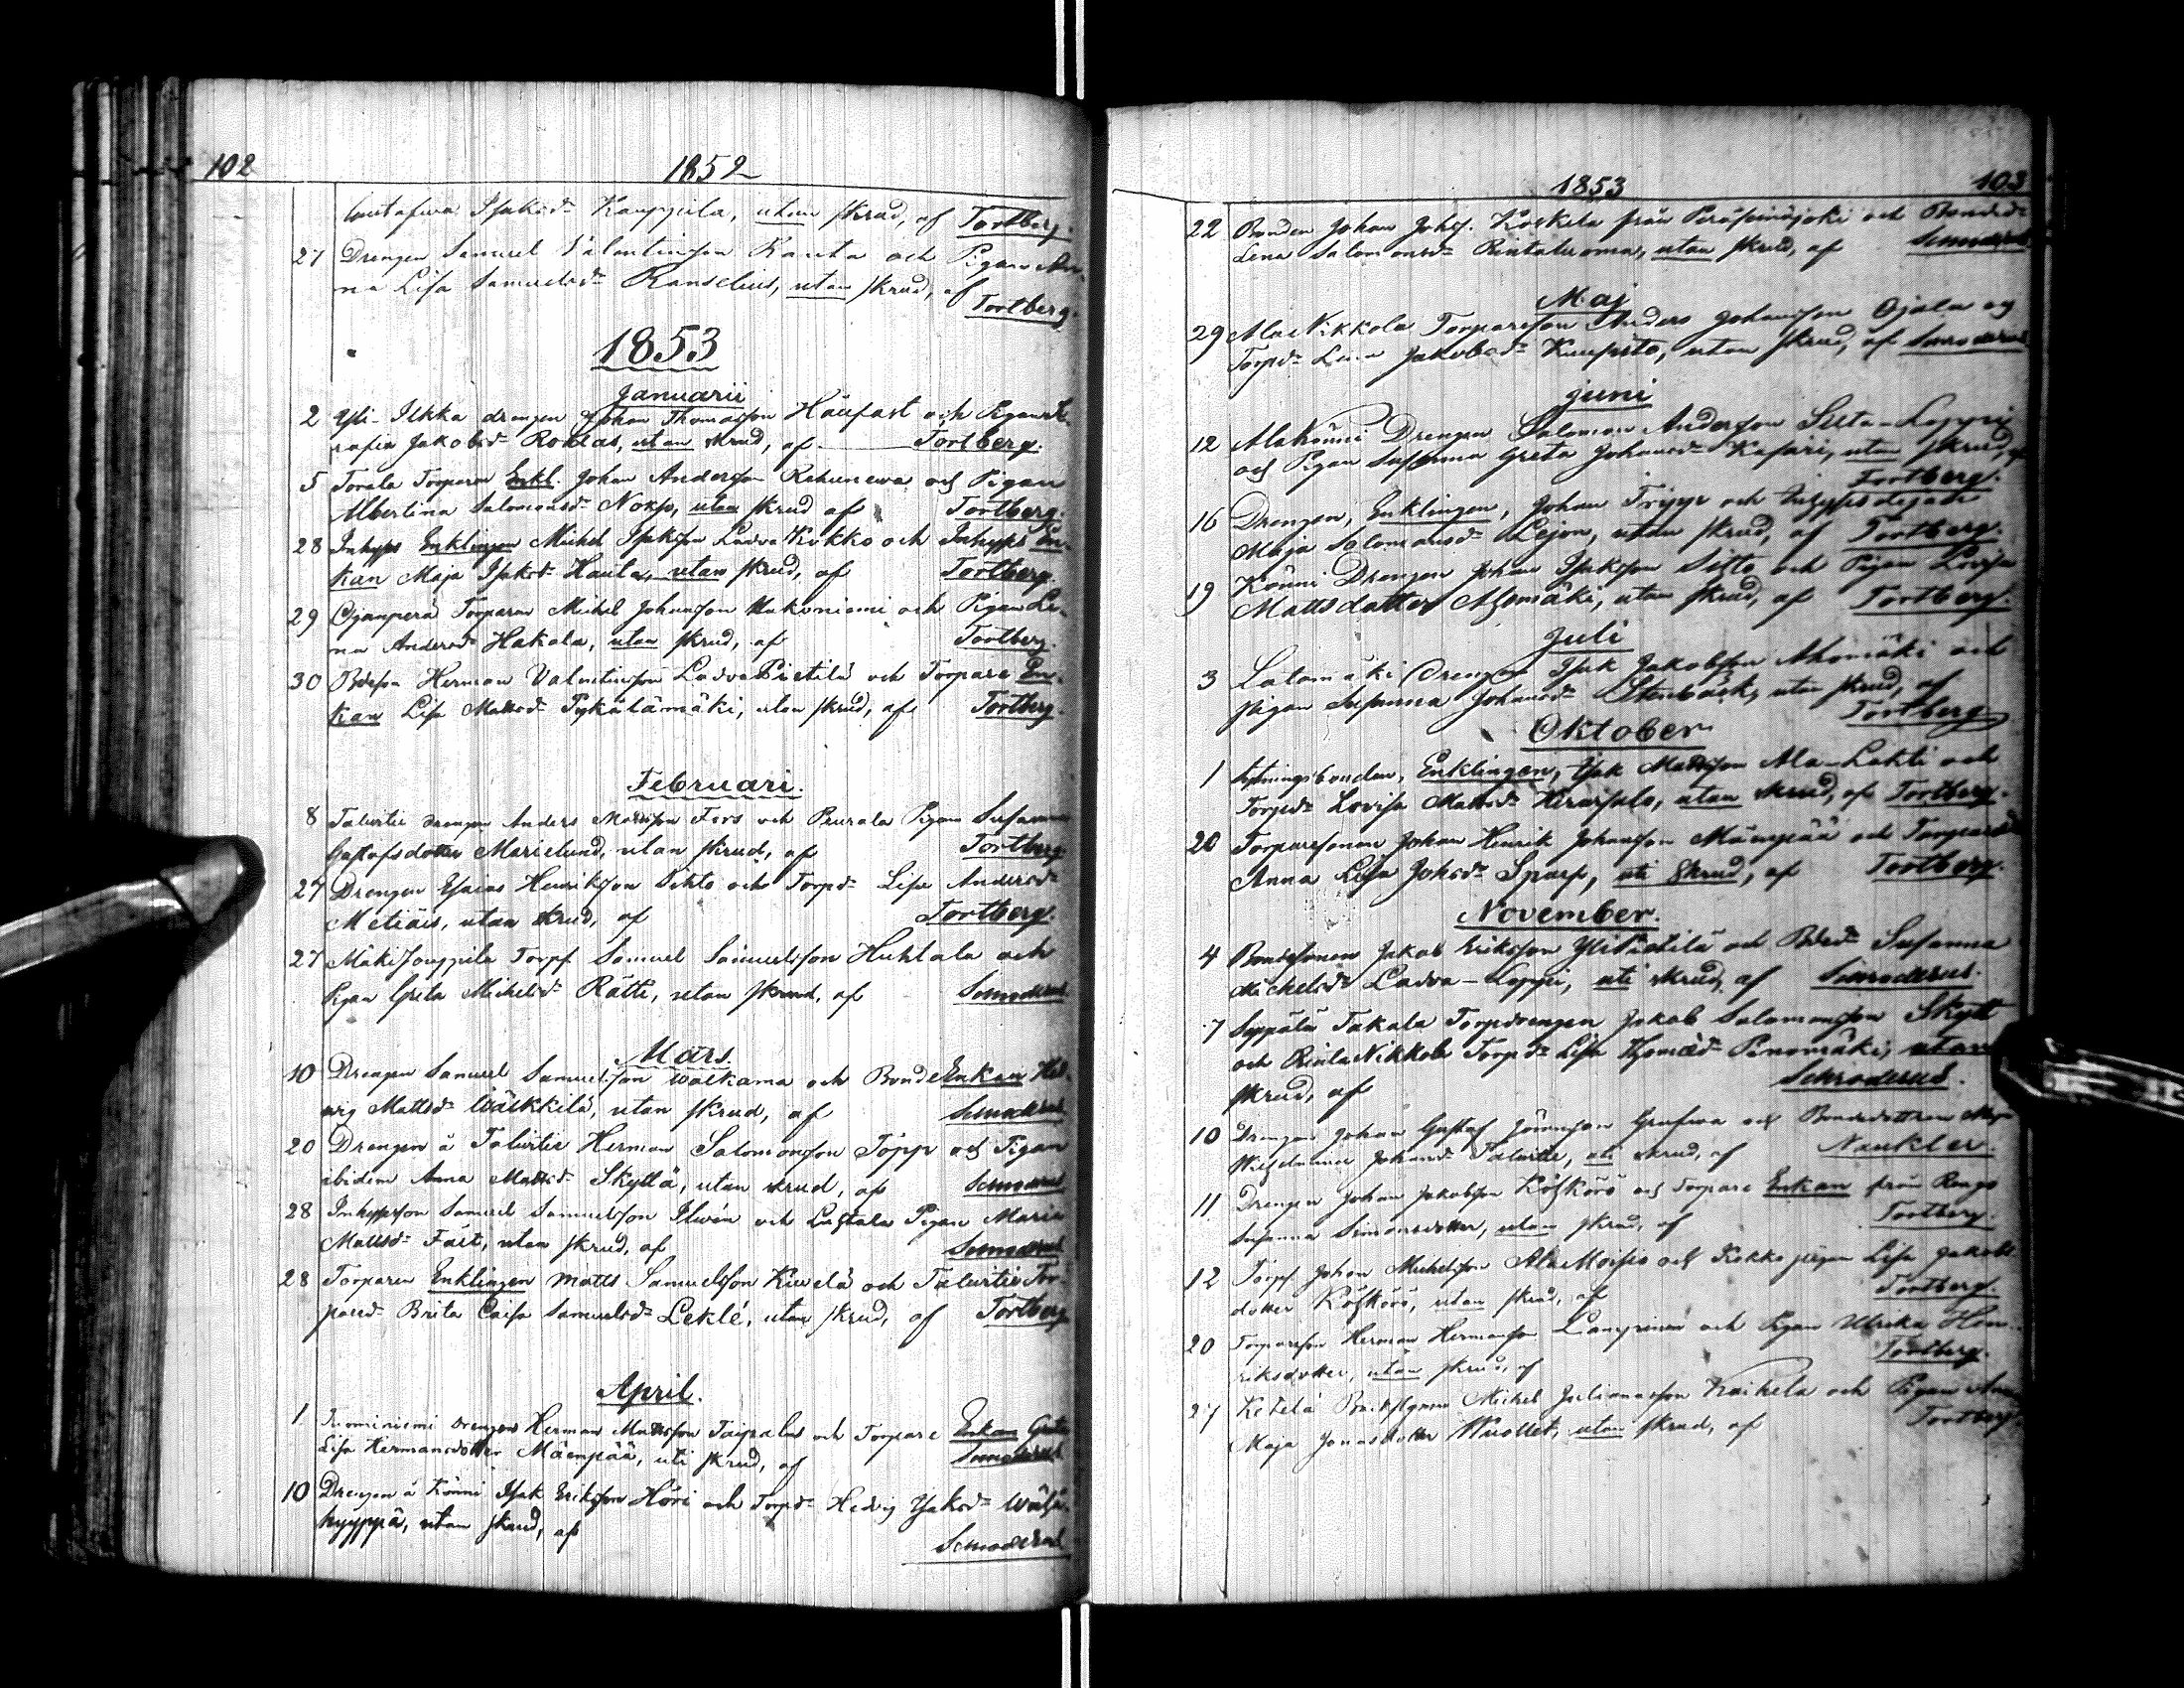 102
1852
Isaksdr Kauppila, utan skrud, af Tortberg.
27 Drengen Samuel Valentinsson Ranta och Pigan An-
na Lisa Samuelsdr Ranselius, utan skrud, af
Tortberg.
1853
Januarii
2 Yli-Ilkka drengen Johan Thomasson Häufast och Pigan
Jakobsdr Rokkas, utan skrud, af Tortberg.
5 Torala Torparen Enkl. Johan Andersson Rahunewa och Pigan
Albertina Salomonsdr Noxo, utan skrud af Tortberg.
28 Inhyses Enklingen Michel Isaksson Ladva Kokko och Inhyses En-
kan Maja Isaksdr Hautla, utan skrud, af Tortberg.
29 Ojanperä Torparen Michel Johansson Hakoniemi och Pigan Le-
na Andersdr Hakala, utan skrud, af Tortberg.
30 Bdeson Herman Valentinsson Ladva Pietilä och Torpare En-
kan Lisa Mattsdr Pykälämäki, utan skrud, af Tortberg.
Februari.
8 Talvitie drengen Anders Mattsson Fors och Peurala Pigan Susanna
Gustafsdotter Marielund, utan skrud, af Tortberg
27 Drengen Esaias Henriksson Sihto och Torpdr Lisa Andersdr
Metiäis, utan skrud, af Tortberg.
27 Mäki Jouppila Torps. Samuel Samuelsson Huhtala och
Pigan Greta Michelsdr Rätti, utan skrud, af Schroderus
Mars.
10 Drengen Samuel Samuelsson Walkama och Bonde Enkan Hed-
vig Mattsdr Wälkkilä, utan skrud, af Schroderus
20 Drengen å Talvitie Herman Salomonsson Töpp och Pigan
ibidem Anna Mattsdr Skyttä, utan skrud, af Schroderus
28 Inhyseson Samuel Samuelsson Ilwén och Luhtala Pigan Maria
Mattsdr Fält, utan skrud, af Schroderus
28 Torparen Enklingen Matts Samuelsson Kiwelä och Talvitie Tor-
paredr Brita Caisa Samuelsdr Leklé, utan skrud, af Tortberg
April.
1 Tuominiemi drengen Herman Mattsson Taipalus och Torpare Enkan Greta
Lisa Hermansdotter Mäenpää, uti skrud, af Schroderus
10 Drengen å Könni Isak Eriksson Höri och Torpdr Hedvig Isaksdr Wäli-
hyyppä, utan skrud, af
Schroderus
1853
103
22 Bonden Johan Johss. Koskela från Peräseinäjoki och Bondedr
Lena Salomonsdr Rintaluoma, utan skrud, af Schroderus
Maj
29 Ala Nikkola Torparesson Anders Johansson Ojala och
Torpdr Lena Jakobsdr Kaupsto, utan skrud, af Schroderus
Juni
12 Alakönni Drengen Salomon Andersson Sita-Loppi
och Pigan Susanna Greta Johansdr Kasari, utan skrud, af
Tortberg.
16 Drengen, Enklingen, Johan Tripp och Inhyses dejan
Maja Salomonsdr Lejon, utan skrud, af Tortberg.
19 Könni Drengen Johan Isaksson Sitto och Pigan Lovisa
Mattsdotter Ahomäki, utan skrud, af Tortberg.
Juli
3 Latomäki Drengen Isak Jakobsson Ahomäki och
Pigan Susanna Johansdr Stenbäck, utan skrud, af
Tortberg
Oktober
1 Sytningsbonden, Enklingen, Isak Mattsson Ala-Lahti och
Torpdr Lovisa Mattsdr Hirvisalo, utan skrud, af Tortberg.
20 Torparesonen Johan Henrik Johansson Mäenpää och Torparedr
Anna Lisa Johsdr Sparf, uti skrud, af Tortberg.
November.
4 Bondesonen Jakob Eriksson YliPietilä och Bdedr Susanna
Michelsdr Ladva-Loppi, uti skrud, af Schroderus.
7 Seppälä Takala Torpdrengen Jakob Salomonsson Skytt
och RintaNikkola Torpdr Lisa Thomædr Penomäki, utan
skrud, af Schroderus.
10 Drengen Johan Gustaf Grufwa och Bondedottren Maja
Wilhelmina Johansdr Talvitie, uti skrud, af Nauklér.
11 Drengen Johan Jakobsson Köhkörö och Torpare Enkan från
Susanna Simonsdotter, utan skrud, af Tortberg.
12 Torps. Johan Michelsson AlaMoisio och Kokko pigan Lisa Jakobs-
dotter Köhkörö, utan skrud, af Tortberg.
20 Torparesson Herman Hermansson Lampinen och Pigan Ulrika Hen-
riksdotter, utan skrud, af Tortberg.
27 Ketelä Michel Julianasson Kaihela och Pigan Anna
Maja Jonasdotter Wuollet, utan skrud, af Tortberg.